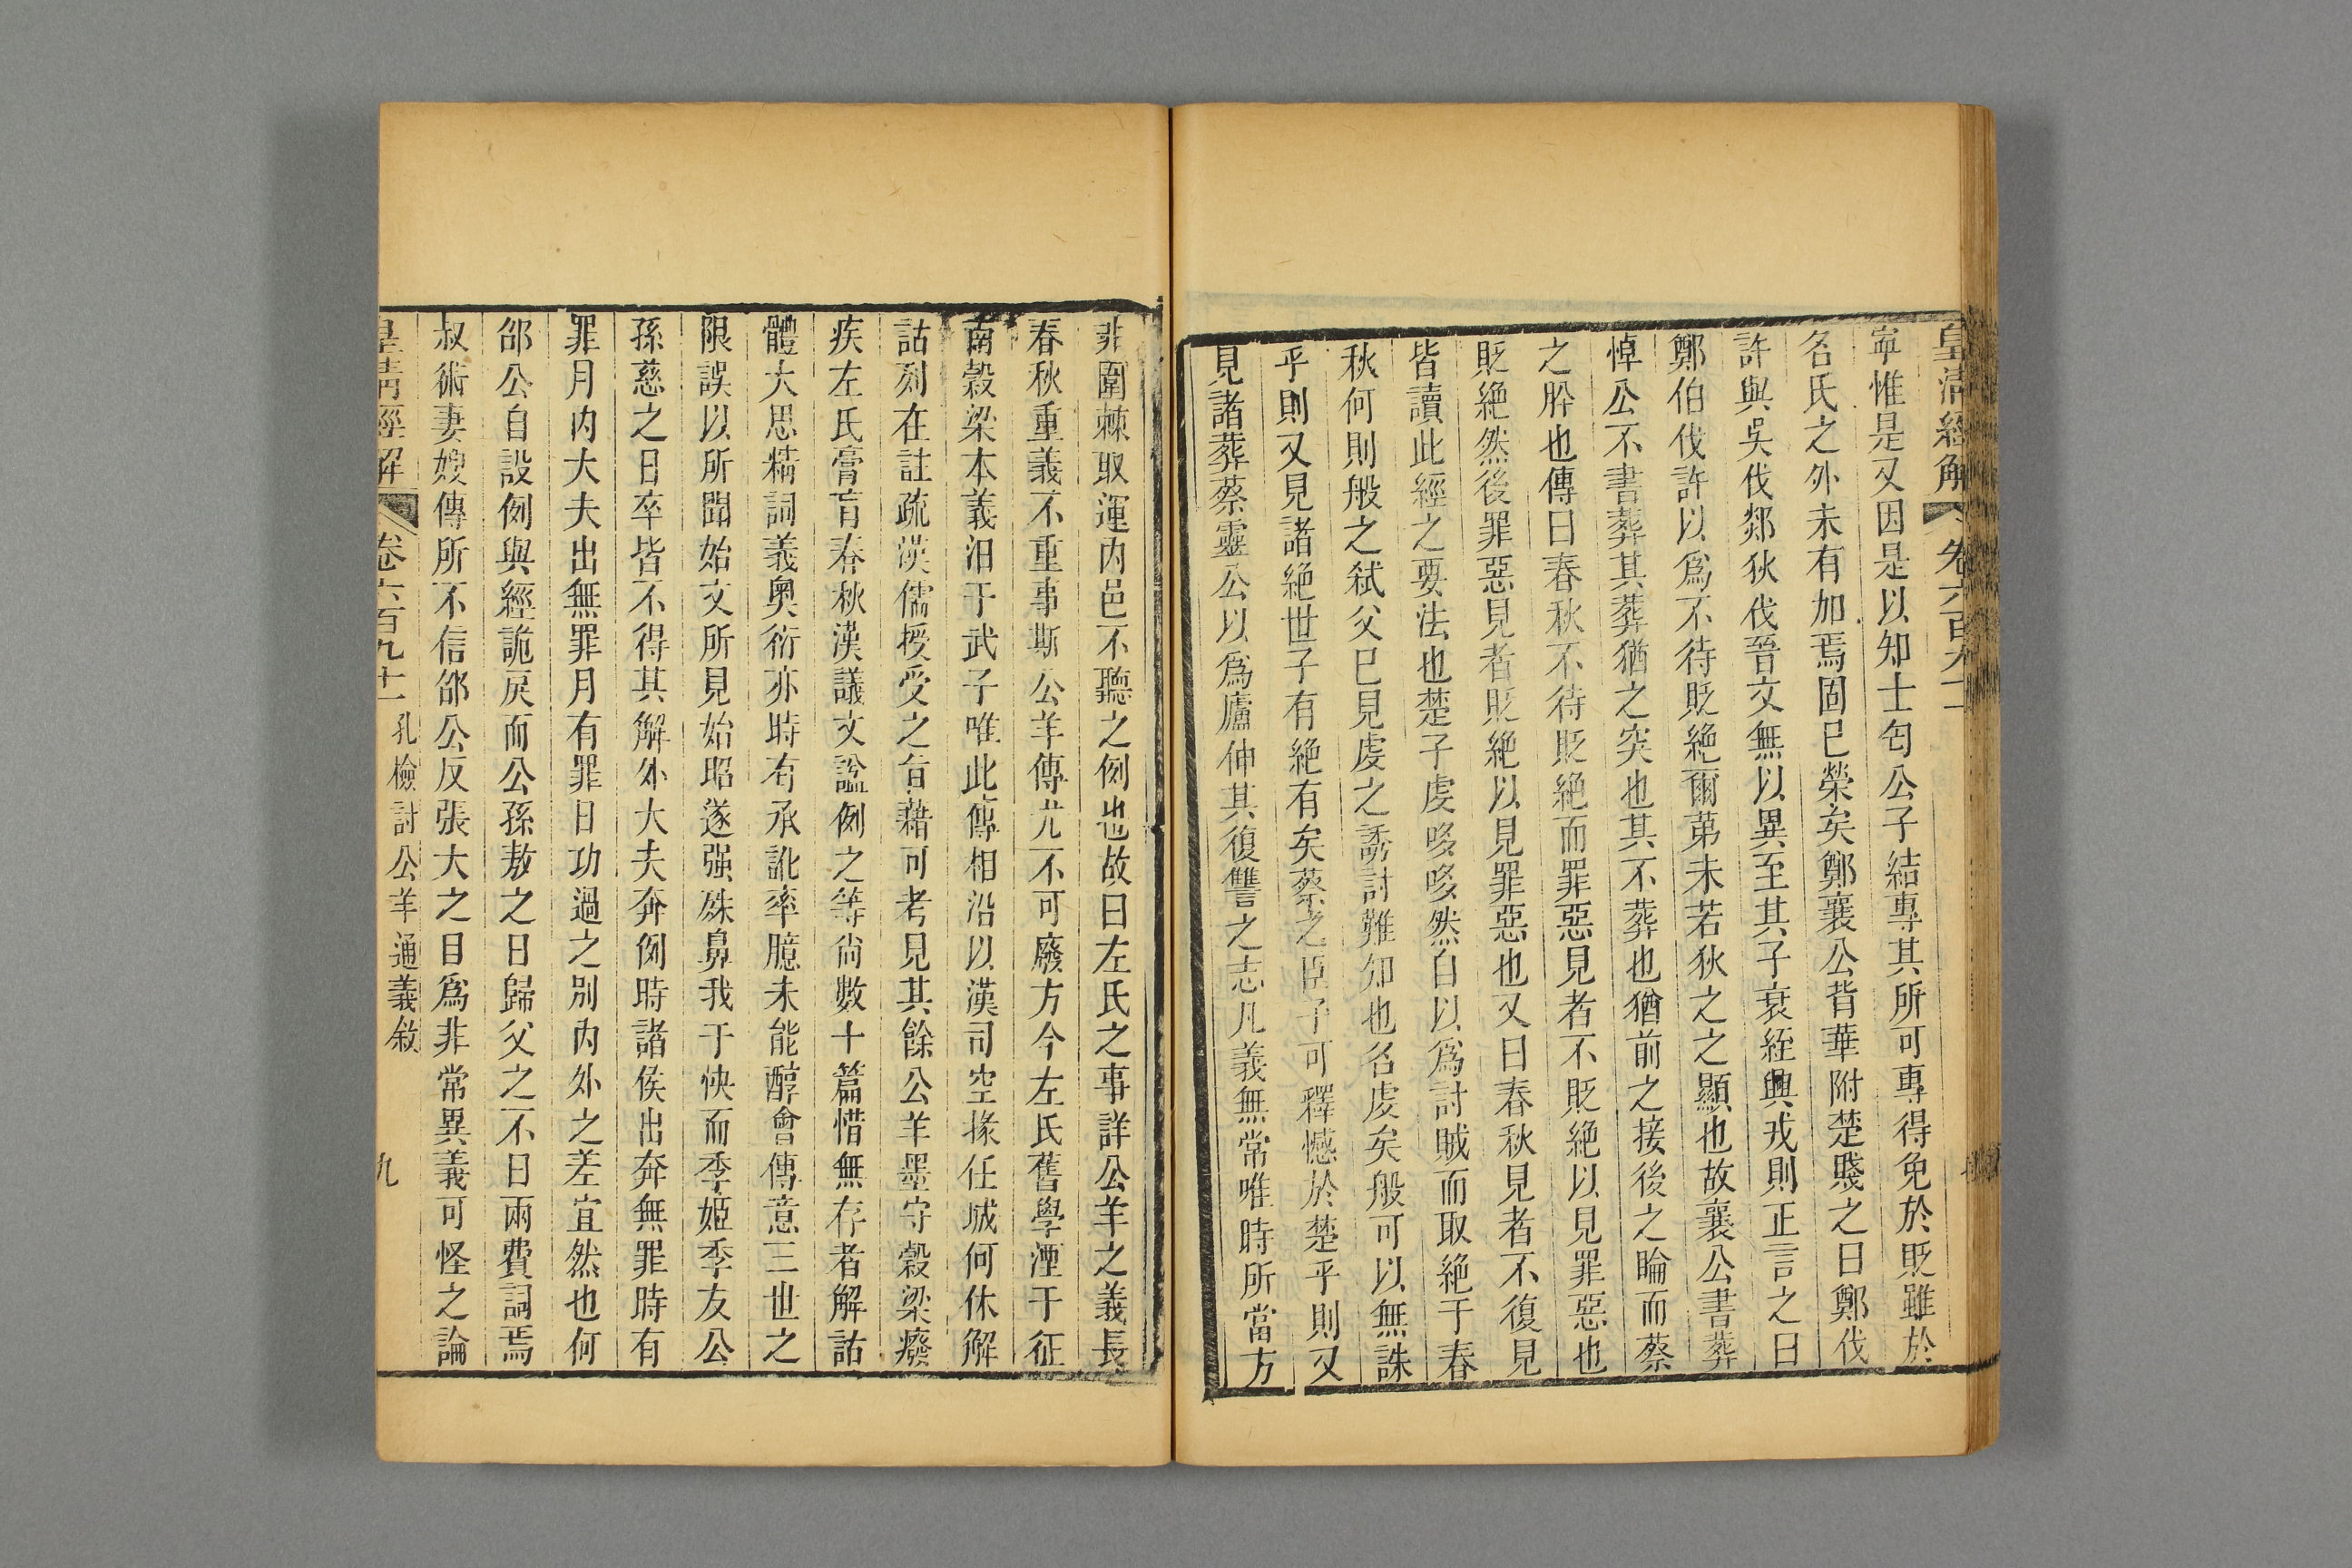 皇清經解 卷六百九十一
寧惟是又因是以知士匄公子結專其所可專得免於貶雖於
名氏之外未有加焉固已榮矣鄭襄公背華附楚賤之曰鄭伐
許與吳伐郯狄伐晉文無以異至其子衰絰興戎則正言之曰
鄭伯伐許以為不待貶絕爾第未若狄之之顯也故襄公書葬
悼公不書葬其葬猶之突也其不葬也猶前之接後之睔而蔡
之肸也傳曰春秋不待貶絕而罪惡見者不貶絕以見罪惡也
貶絕然後罪惡見者貶絕以見罪惡也又曰春秋見者不復見
皆讀此經之要法也楚子虔哆哆然自以為討賊而取絕于春
秋何則般之弒父已見虔之誘討難知也名虔矣般可以無誅
乎則又見諸絕世子有絕有矣蔡之臣子可釋憾於楚乎則又
見諸葬蔡靈公以為廬伸其復讐之志凡義無常唯時所當方
非圍棘取運內邑不聽之例也故曰左氏之事詳公羊之義長
春秋重義不重事斯公羊傳尤不可廢方今左氏舊學湮于征
南穀梁本義汨于武子唯此傳相沿以漢司空掾任城何休解
詁列在註疏漢儒授受之旨藉可考見其餘公羊墨守穀梁癈
疾左氏膏肓春秋漢議文謚例之等尙數十篇惜無存者解詁
體大思精詞義奧衍亦時有承訛率臆未能醇會傳意三世之
限誤以所聞始文所見始昭遂强殊鼻我于快而季姬季友公
孫慈之日卒皆不得其解外大夫奔例時諸侯出奔無罪時有
罪月內大夫出無罪月有罪日功過之別內外之差宜然也何
邵公自設例與經詭戾而公孫敖之日歸父之不日兩費詞焉
叔術妻嫂傳所不信邵公反張大之目為非常異義可怪之論
皇清經解 卷六百九十一 孔檢討公羊通義敘 九